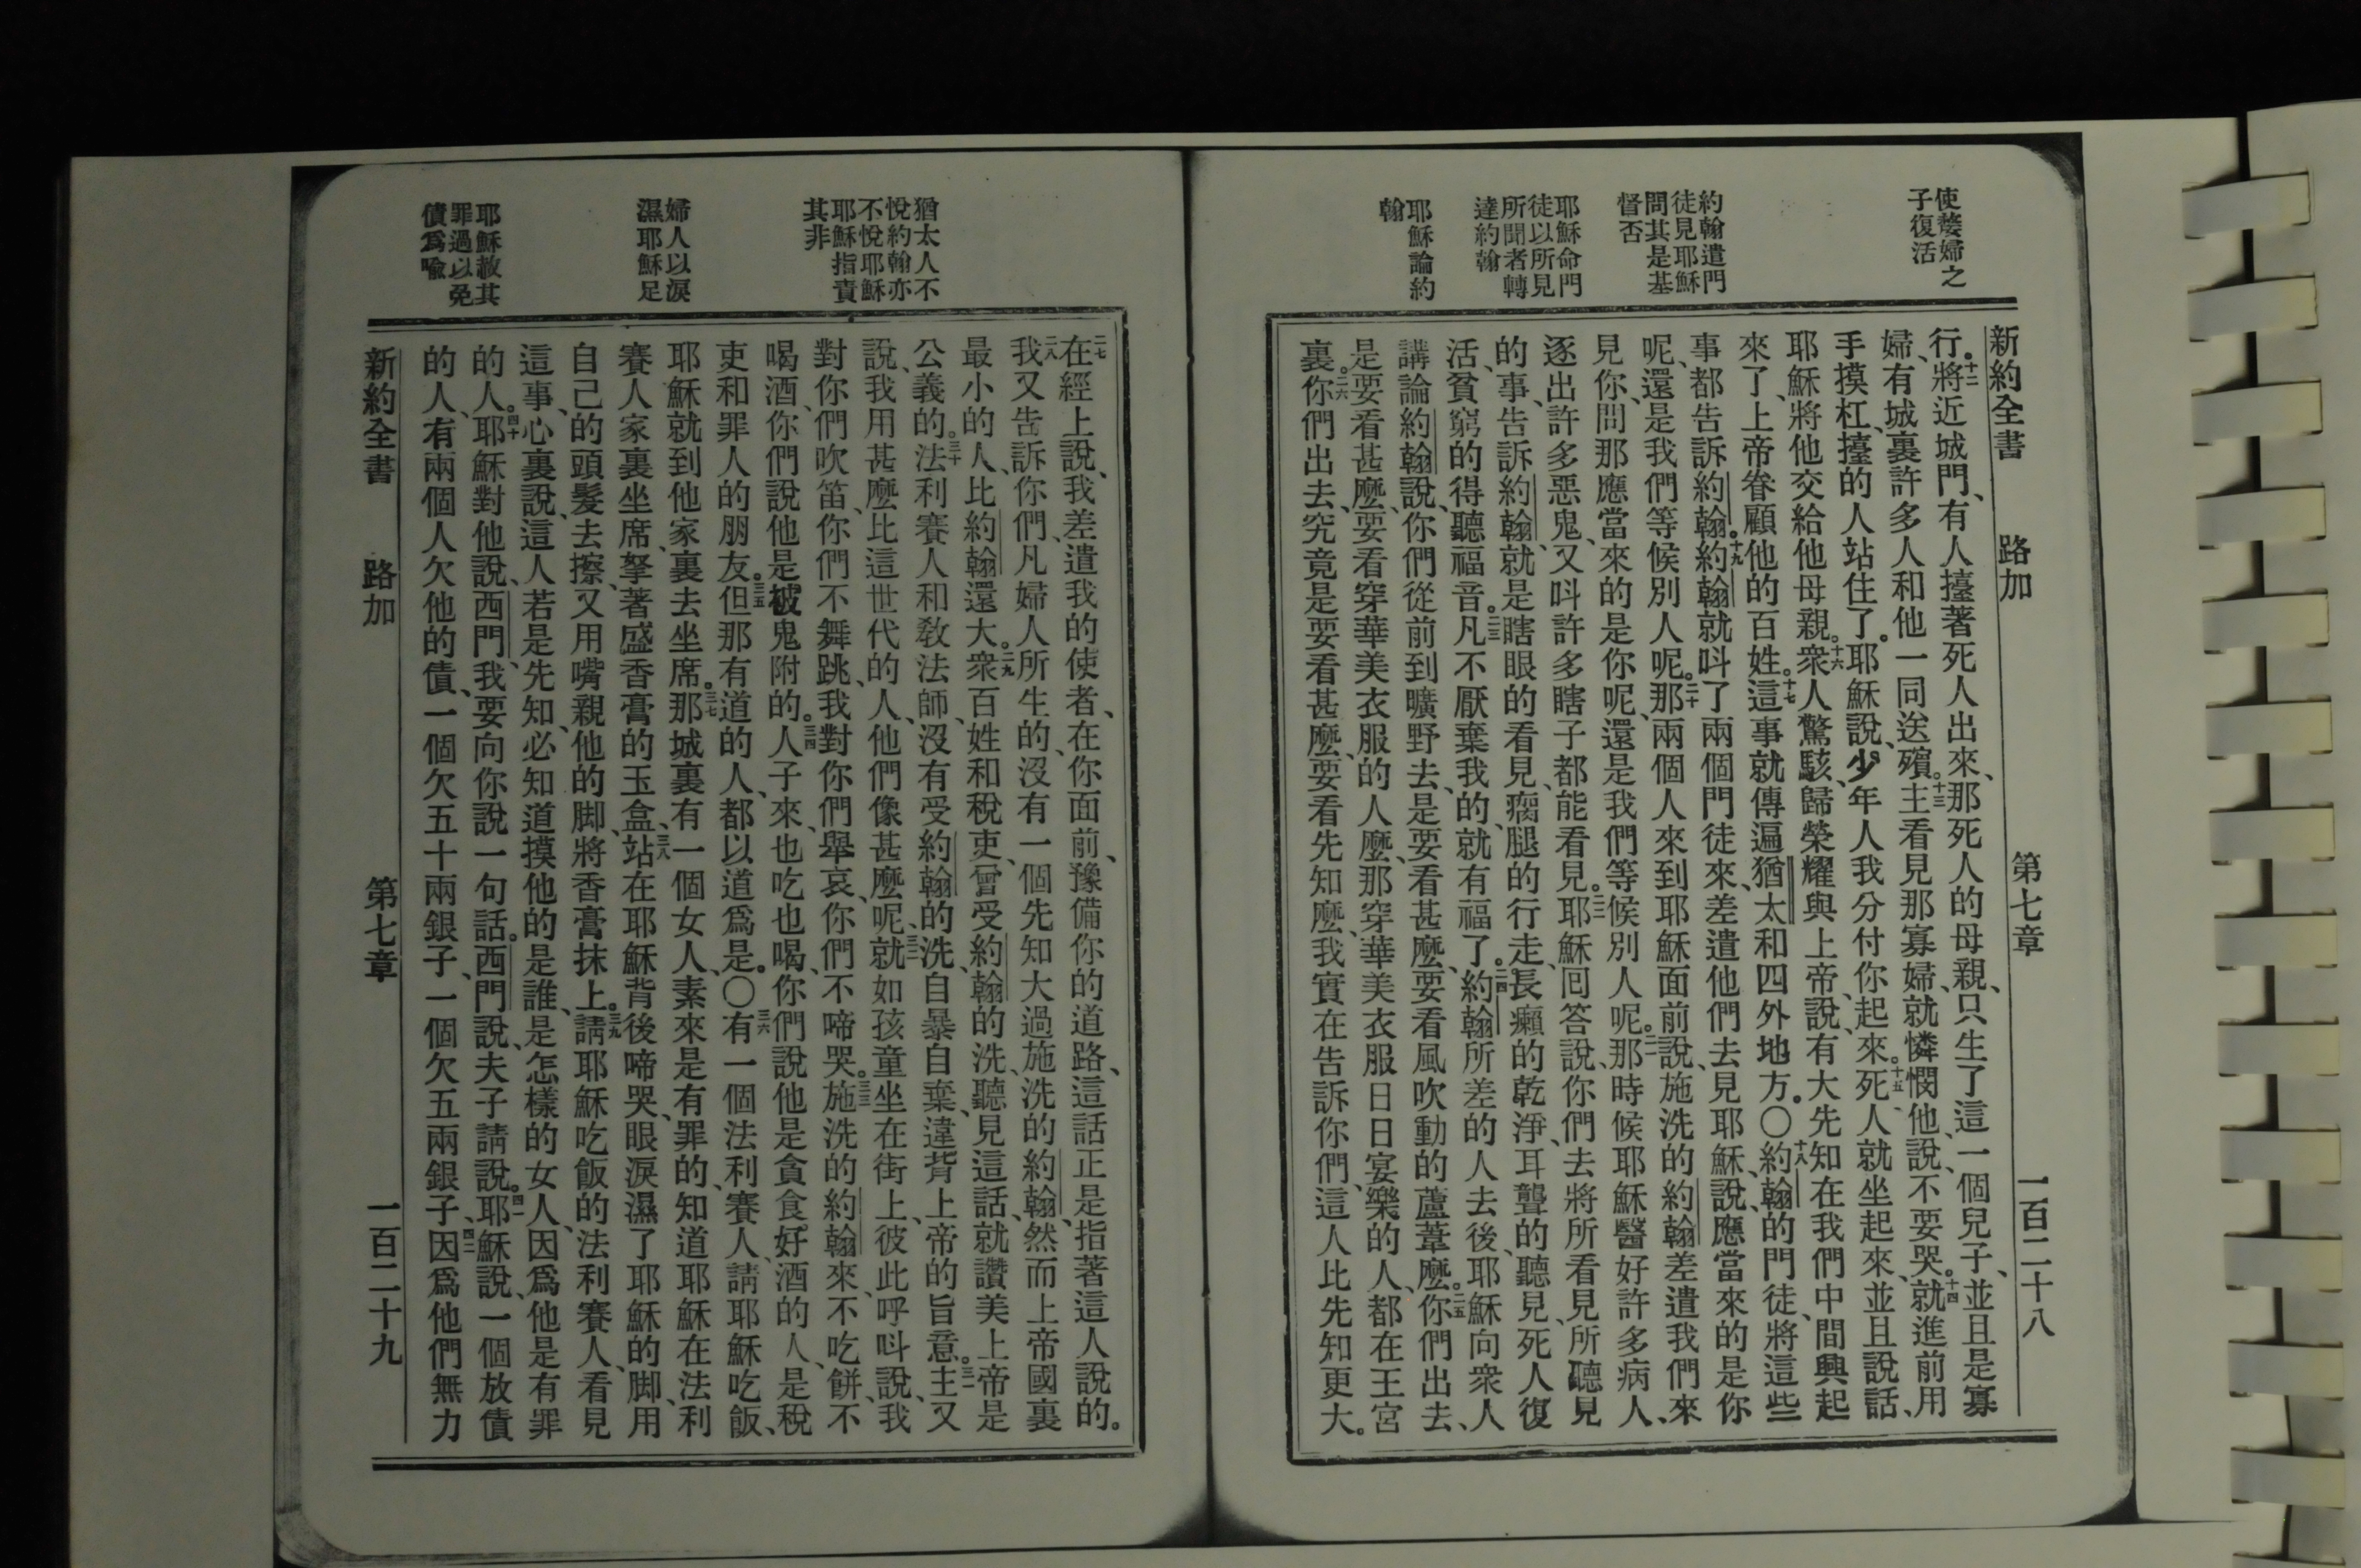 使嫠婦之
子復活
約翰遣門
徒見耶穌
問其是基
督否
耶穌命門
徒以所見
所聞者轉
達約翰
耶穌論約
翰
新約全書 路加 第七章 一百二十八
行。十二將近城門、有人擡著死人出來、那死人的母親、只生了這一個兒子、並且是寡
婦、有城裏許多人和他一同送殯。十三主看見那寡婦、就憐憫他、說、不要哭。十四就進前用
手摸杠、擡的人站住了。耶穌說、少年人我分付你起來。十五死人就坐起來、並且說話、
耶穌將他交給他母親。十六衆人驚駭、歸榮耀與上帝、說、有大先知在我們中間興起
來了、上帝眷顧他的百姓。十七這事就傳遍猶太和四外地方。〇十八約翰的門徒、將這些
事都告訴約翰。十九約翰就呌了兩個門徒來、差遣他們去見耶穌、說、應當來的是你
呢、還是我們等候別人呢。二十那兩個人來到耶穌面前說、施洗的約翰差遣我們來
見你、問那應當來的是你呢、還是我們等候別人呢。二一那時候耶穌醫好許多病人、
逐出許多惡鬼、又呌許多瞎子都能看見。二二耶穌回答說、你們去將所看見所聽見
的事、告訴約翰、就是瞎眼的看見、瘸腿的行走、長癩的乾淨、耳聾的聽見、死人復
活、貧窮的得聽福音。二三凡不厭棄我的、就有福了。二四約翰所差的人去後、耶穌向衆人
講論約翰說、你們從前到曠野去、是要看甚麽、要看風吹動的蘆葦麽。二五你們出去、
是要看甚麽、要看穿華美衣服的人麽、那穿華美衣服日日宴樂的人、都在王宮
裏。二六你們出去、究竟是要看甚麽、要看先知麽、我實在告訴你們、這人比先知更大。
猶太人不
悅約翰亦
不悅耶穌
耶穌指責
其非
婦人以淚
濕耶穌足
耶穌赦其
罪過以免
債爲喩
二七在經上說、我差遣我的使者、在你面前、豫備你的道路、這話正是指著這人說的。
二八我又告訴你們、凡婦人所生的、沒有一個先知大過施洗的約翰、然而上帝國裏
最小的人、比約翰還大。二九衆百姓和稅吏、曾受約翰的洗、聽見這話、就讚美上帝是
公義的。三十法利賽人和敎法師、沒有受約翰的洗、自暴自棄、違背上帝的旨意。三一主又
說、我用甚麽比這世代的人、他們像甚麽呢、三二就如孩童坐在街上、彼此呼呌說、我
對你們吹笛、你們不舞跳、我對你們舉哀、你們不啼哭。三三施洗的約翰來、不吃餅、不
喝酒、你們說他是被鬼附的。三四人子來、也吃也喝、你們說他是貪食好酒的人、是稅
吏和罪人的朋友。三五但那有道的人、都以道爲是。〇三六有一個法利賽人、請耶穌吃飯、
耶穌就到他家裏去坐席。三七那城裏有一個女人、素來是有罪的、知道耶穌在法利
賽人家裏坐席、拏著盛香膏的玉盒、三八站在耶穌背後啼哭、眼淚濕了耶穌的脚、用
自己的頭髮去擦、又用嘴親他的脚、將香膏抹上。三九請耶穌吃飯的法利賽人、看見
這事、心裏說、這人若是先知、必知道摸他的是誰、是怎樣的女人、因爲他是有罪
的人。四十耶穌對他說、西門、我要向你說一句話。西門說、夫子請說。四一耶穌說、一個放債
的人、有兩個人欠他的債、一個欠五十兩銀子、一個欠五兩銀子、四二因爲他們無力
新約全書 路加 第七章 一百二十九